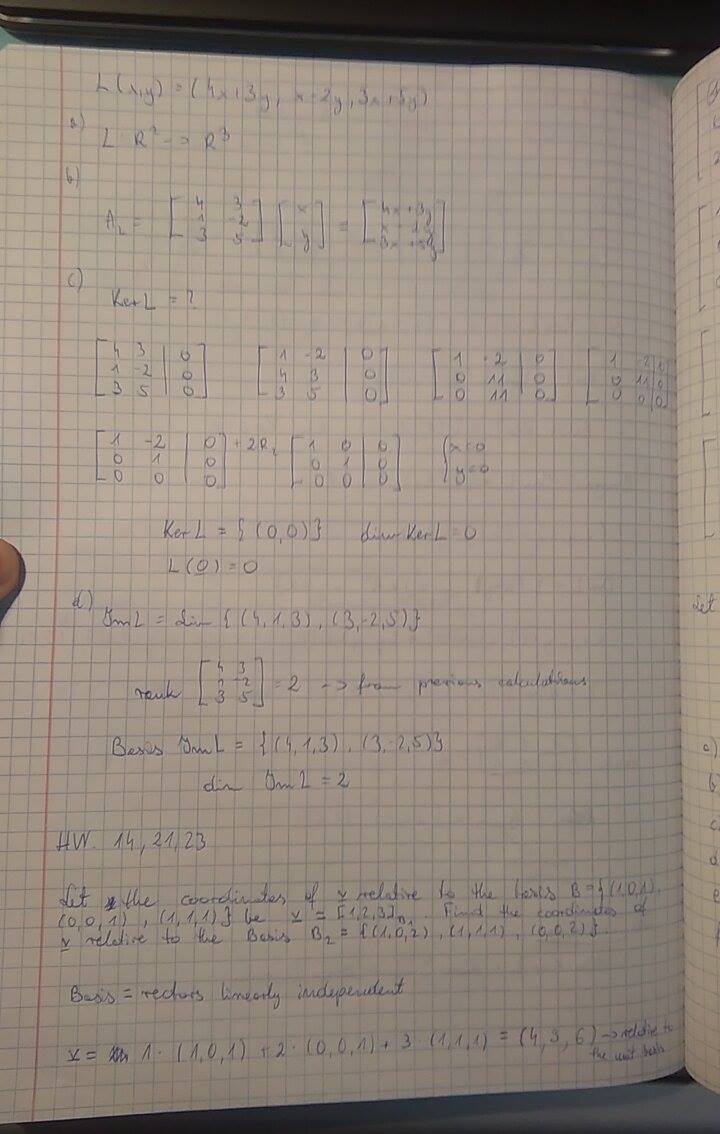 L(x,y) = (4x+3y, x-2y, 3x+5y)
a) L: R² -> R³
b)
A_L = [4 3; 1 -2; 3 5] [x; y] = [4x+3y; x-2y; 3x+5y]
c)
Ker L = ?
[4 3 | 0; 1 -2 | 0; 3 5 | 0] [1 -2 | 0; 4 3 | 0; 3 5 | 0] [1 -2 | 0; 0 11 | 0; 0 11 | 0] [1 -2 | 0; 0 11 | 0; 0 0 | 0]
[1 -2 | 0; 0 1 | 0; 0 0 | 0] +2R₂ [1 0 | 0; 0 1 | 0; 0 0 | 0] {x=0 y=0
Ker L = {(0,0)} dim Ker L = 0
L(0) = 0
d) Im L = lin {(4,1,3), (3,-2,5)}
rank [4 3; 1 -2; 3 5] = 2 -> from previous calculations
Basis Im L = {(4,1,3), (3,-2,5)}
dim Im L = 2
HW. 14, 21, 23
Let the coordinates of v relative to the basis B = {(1,0,1),
(0,0,1), (1,1,1)} be v = [1,2,3]_B₁. Find the coordinates of
v relative to the Basis B₂ = {(1,0,2), (1,1,1), (0,0,2)}.
Basis = vectors linearly independent
v = 1·(1,0,1) + 2·(0,0,1) + 3·(1,1,1) = (4,3,6) -> relative to
the unit basis
Let
c)
b
c
d
e